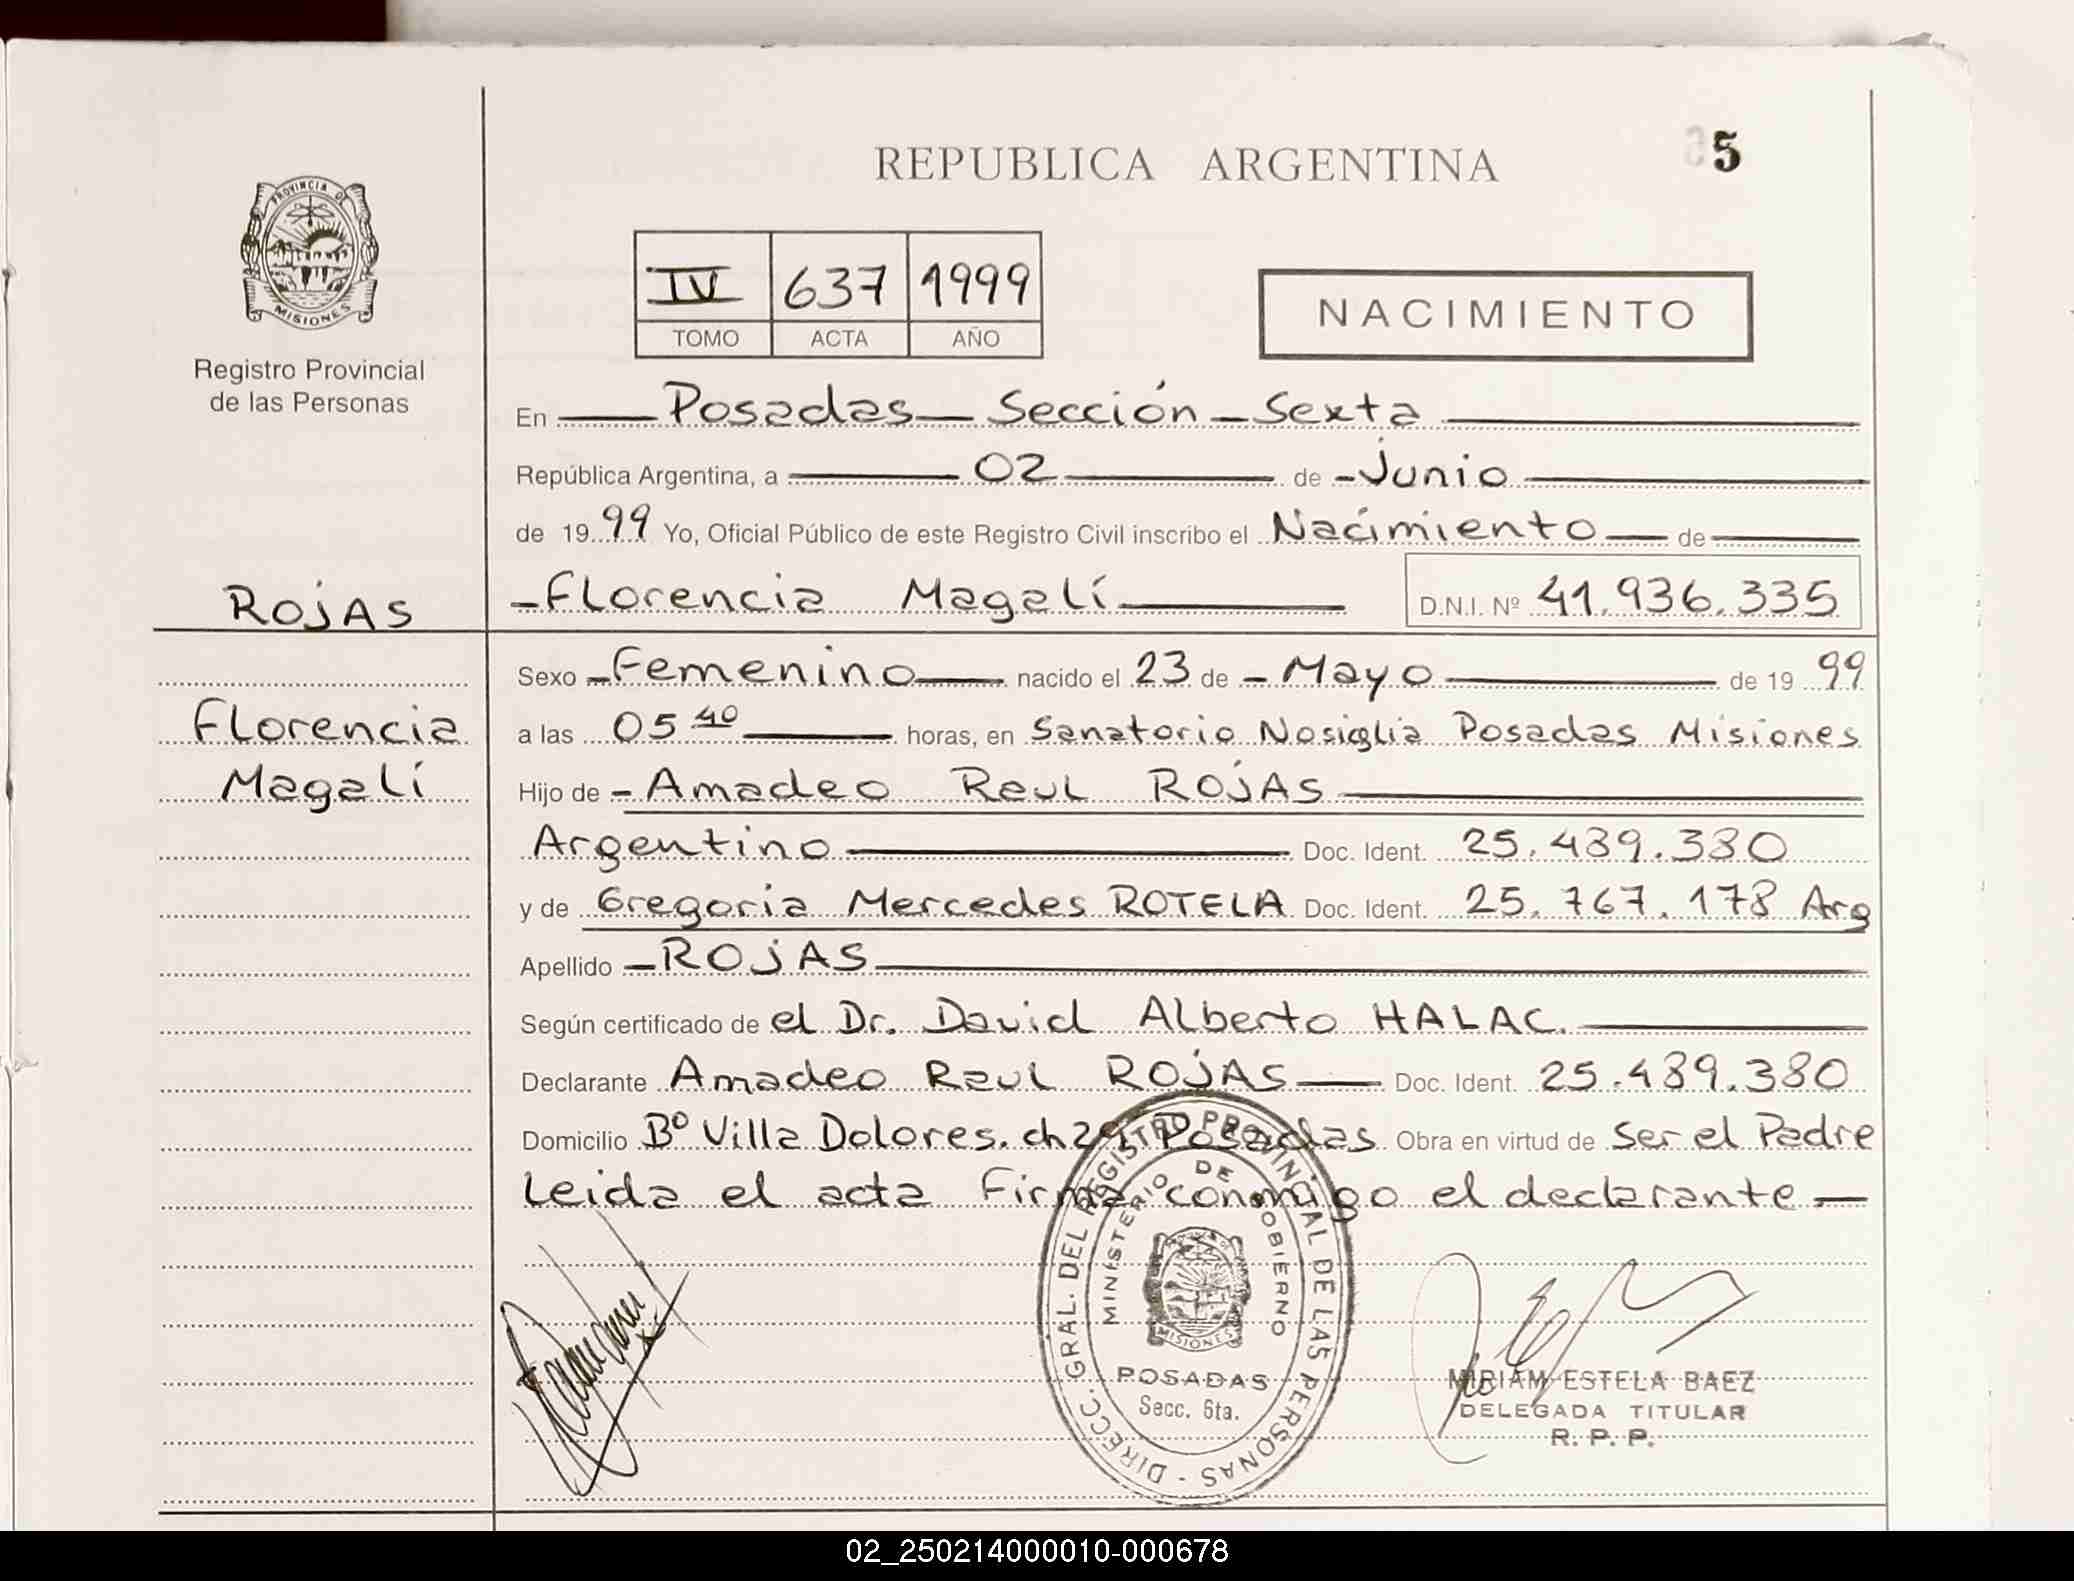 REPUBLICA ARGENTINA
5
PROVINCIA DE
MISIONES
Registro Provincial
de las Personas
IV 637 1999
TOMO ACTA AÑO
NACIMIENTO
En Posadas Sección Sexta
República Argentina, a 02 de Junio
de 1999 Yo, Oficial Público de este Registro Civil inscribo el Nacimiento de
ROJAS
Florencia Magalí D.N.I. Nº 41.936.335
Sexo Femenino nacido el 23 de Mayo de 1999
Florencia
Magalí
a las 05 40 horas, en Sanatorio Nosiglia Posadas Misiones
Hijo de Amadeo Raul ROJAS
Argentino Doc. Ident. 25.489.380
y de Gregoria Mercedes ROTELA Doc. Ident. 25.767.178 Arg
Apellido ROJAS
Según certificado de el Dr. David Alberto HALAC.
Declarante Amadeo Raul ROJAS Doc. Ident. 25.489.380
Domicilio Bº Villa Dolores. ch 29 Posadas Obra en virtud de Ser el Padre
Leida el acta Firma conmigo el declarante.
DIRECC. GRAL. DEL REGISTRO PROVINCIAL DE LAS PERSONAS -
MINISTERIO DE GOBIERNO
MISIONES
POSADAS
Secc. 6ta.
MIRIAM ESTELA BAEZ
DELEGADA TITULAR
R. P. P.
02_250214000010-000678